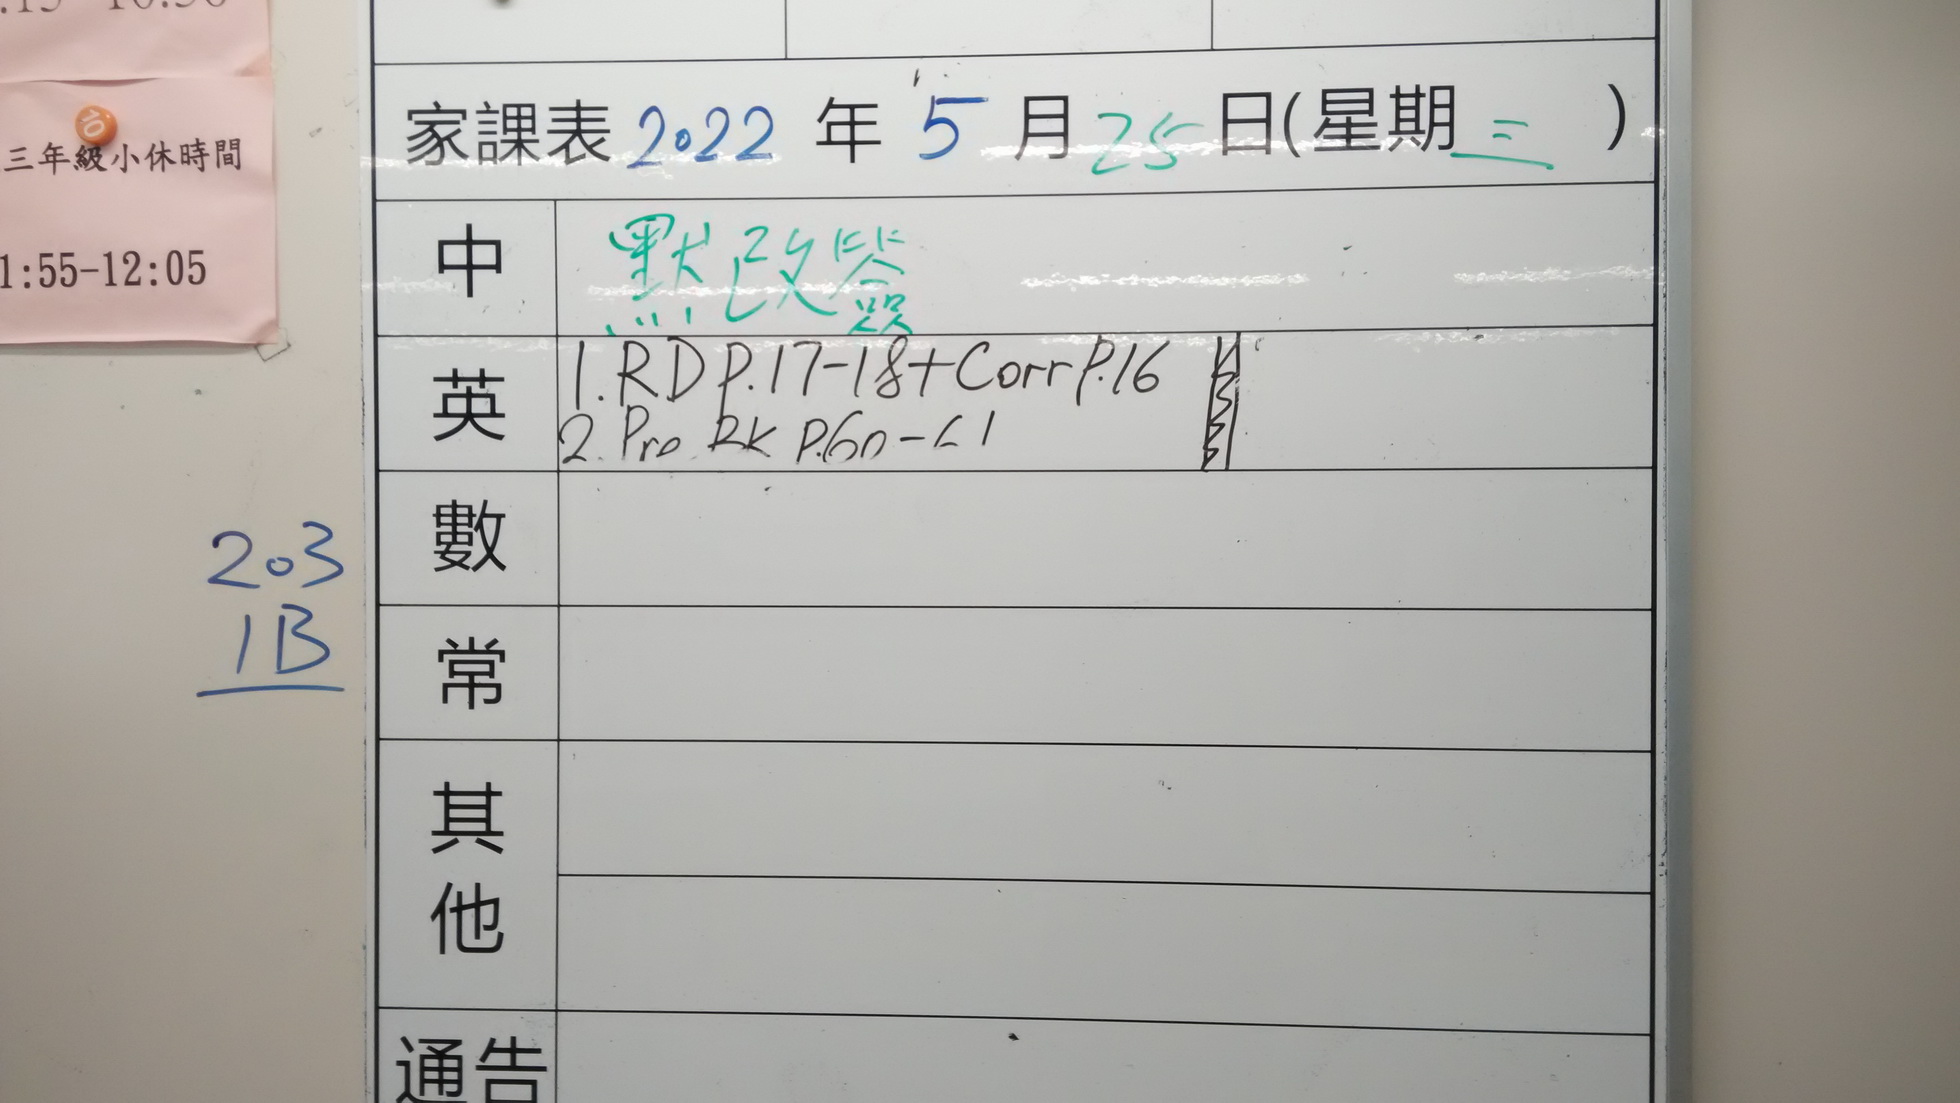 三年級小休時間
1:55-12:05
203
1B
家課表 2022 年 5 月 25 日(星期三)
中 默改簽
英 1. RD P.17-18+Corr P.16
2. Pro BK P.60-61
數
常
其他
通告